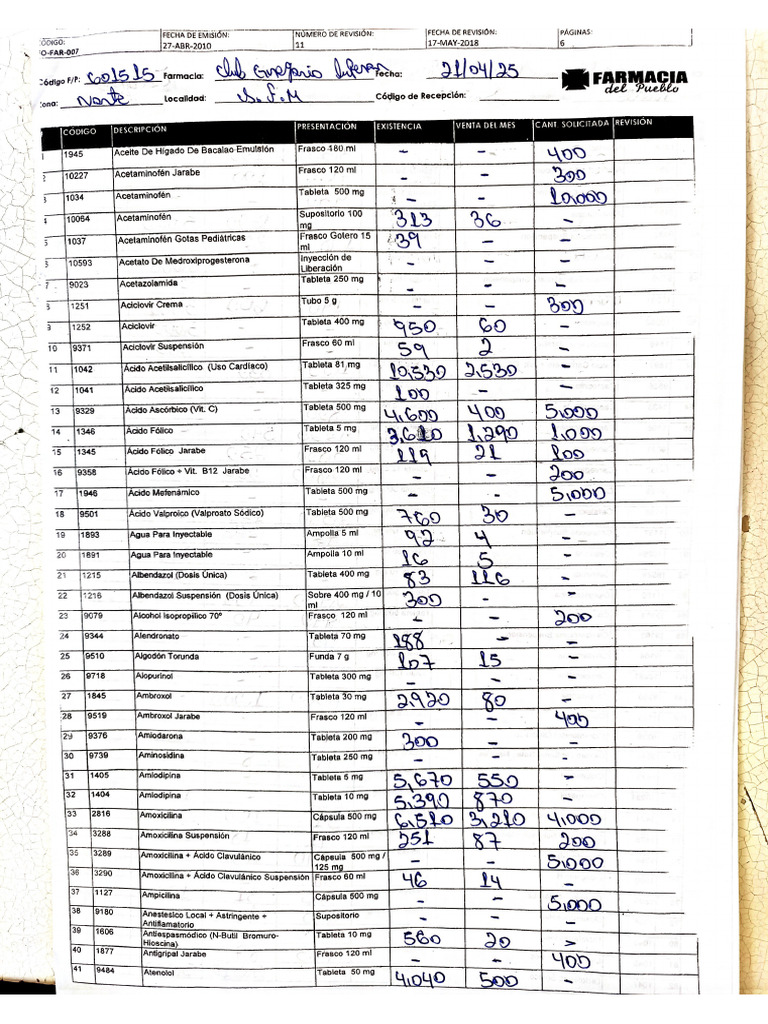 CÓDIGO: FECHA DE EMISIÓN: NÚMERO DE REVISIÓN: FECHA DE REVISIÓN: PÁGINAS:
FO-FAR-007 27-ABR-2010 11 17-MAY-2018 6
Código F/P: 601515 Farmacia: Club Fecha: 21/04/25
Zona: Norte Localidad: S.F.M Código de Recepción:
FARMACIA
del Pueblo
CÓDIGO DESCRIPCIÓN PRESENTACIÓN EXISTENCIA VENTA DEL MES CANT. SOLICITADA REVISIÓN
1 1945 Aceite De Hígado De Bacalao Emulsión Frasco 180 ml - - 400
2 10227 Acetaminofén Jarabe Frasco 120 ml - - 300
3 1034 Acetaminofén Tableta 500 mg - - 10,000
4 10064 Acetaminofén Supositorio 100 mg 313 36 -
5 1037 Acetaminofén Gotas Pediátricas Frasco Gotero 15 ml 39 - -
6 10593 Acetato De Medroxiprogesterona Inyección de Liberación - - -
7 9023 Acetazolamida Tableta 250 mg - - -
8 1251 Aciclovir Crema Tubo 5 g - - 300
9 1252 Aciclovir Tableta 400 mg 950 60 -
10 9371 Aciclovir Suspensión Frasco 60 ml 59 2 -
11 1042 Ácido Acetilsalicílico (Uso Cardíaco) Tableta 81 mg 10,530 2,530 -
12 1041 Ácido Acetilsalicílico Tableta 325 mg 100 - -
13 9329 Ácido Ascórbico (Vit. C) Tableta 500 mg 4,600 400 5,000
14 1346 Ácido Fólico Tableta 5 mg 3,610 1,290 1,000
15 1345 Ácido Fólico Jarabe Frasco 120 ml 119 21 100
16 9358 Ácido Fólico + Vit. B12 Jarabe Frasco 120 ml - - 200
17 1946 Ácido Mefenámico Tableta 500 mg - - 5,000
18 9501 Ácido Valproico (Valproato Sódico) Tableta 500 mg 760 30 -
19 1893 Agua Para Inyectable Ampolla 5 ml 92 4 -
20 1891 Agua Para Inyectable Ampolla 10 ml 16 5 -
21 1215 Albendazol (Dosis Única) Tableta 400 mg 83 116 -
22 1216 Albendazol Suspensión (Dosis Única) Sobre 400 mg / 10 ml 300 - -
23 9079 Alcohol Isopropílico 70º Frasco 120 ml - - 200
24 9344 Alendronato Tableta 70 mg 188 - -
25 9510 Algodón Torunda Funda 7 g 107 15 -
26 9718 Alopurinol Tableta 300 mg - - -
27 1845 Ambroxol Tableta 30 mg 2,920 80 -
28 9519 Ambroxol Jarabe Frasco 120 ml - - 400
29 9376 Amiodarona Tableta 200 mg 300 - -
30 9739 Aminosidina Tableta 250 mg - - -
31 1405 Amlodipina Tableta 5 mg 5,670 550 -
32 1404 Amlodipina Tableta 10 mg 5,390 870 -
33 2816 Amoxicilina Cápsula 500 mg 6,510 3,210 4,000
34 3288 Amoxicilina Suspensión Frasco 120 ml 251 87 200
35 3289 Amoxicilina + Ácido Clavulánico Cápsula 500 mg / 125 mg - - 5,000
36 3290 Amoxicilina + Ácido Clavulánico Suspensión Frasco 60 ml 46 14 -
37 1127 Ampicilina Cápsula 500 mg - - 5,000
38 9180 Anestesico Local + Astringente + Antiflamatorio Supositorio - - -
39 1606 Antiespasmódico (N-Butil Bromuro-Hioscina) Tableta 10 mg 560 20 -
40 1877 Antigripal Jarabe Frasco 120 ml - - 400
41 9484 Atenolol Tableta 50 mg 4,040 500 -